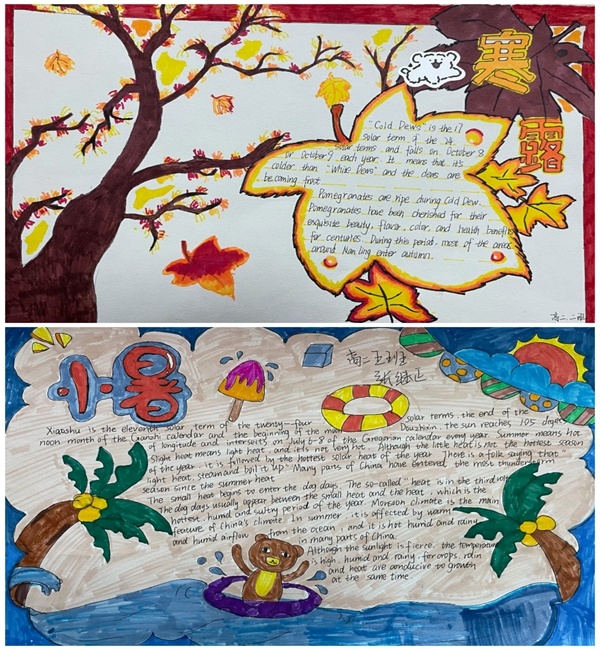 寒
露
"Cold Dews" is the 17
solar term of the 24
solar terms and falls on October 8
or October 9 each year. It means that it's
colder than "White Dews" and the dews are
becoming frost.
Pomegranates are ripe during Cold Dew.
Pomegranates have been cherished for their
exquisite beauty, flavor, color, and health benefits
for centuries. During this period, most of the areas
around Nanling enter autumn.
高二.二班
小暑
高二五班
Xiaoshu is the eleventh solar term of the twenty-four solar terms. the end of the
noon month of the Ganzhi calendar and the beginning of the month Douzhixin. the sun reaches 105 degrees
of longitude and intersects at July 6-8 of the Gregorian calendar every year. Summer means hot
Slight heat means light heat, and it's not very hot. Although the little heat is not the hottest season
of the year, it is followed by the hottest solar heat of the year. There is a folk saying that "
light heat, steam and boil it up". Many parts of China have entered the most thunderstorm
season since the summer heat
The small heat begins to enter the dog days. The so-called "heat" is in the third
The dog days usually appear between the small heat and the heat, which is the
hottest, humid and sultry period of the year. Monsoon climate is the main
feature of China's climate. In summer, it is affected by warm
and humid airflow from the ocean, and it is hot humid and rainy
in many parts of China.
Although the sunlight is fierce, the temperature
is high, humid and rainy. for crops, rain
and heat are conducive to growth
at the same time.